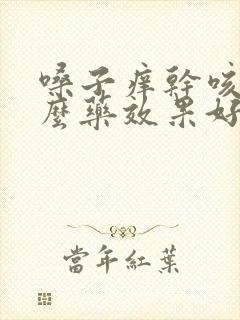 嗓子痒幹咳
麼藥效果好
當年紅葉